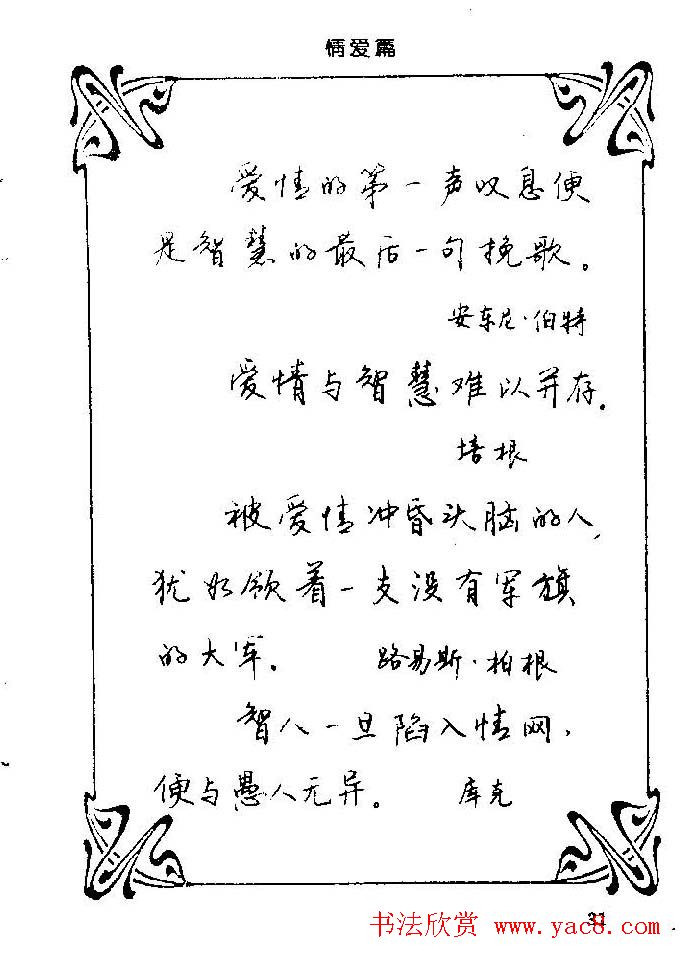 情爱篇
爱情的第一声叹息便
是智慧的最后一句挽歌。
安东尼·伯特
爱情与智慧难以并存。
培根
被爱情冲昏头脑的人,
犹如领着一支没有军旗
的大军。 路易斯·柏根
智人一旦陷入情网,
便与愚人无异。 库克
31
书法欣赏 www.yac8.com